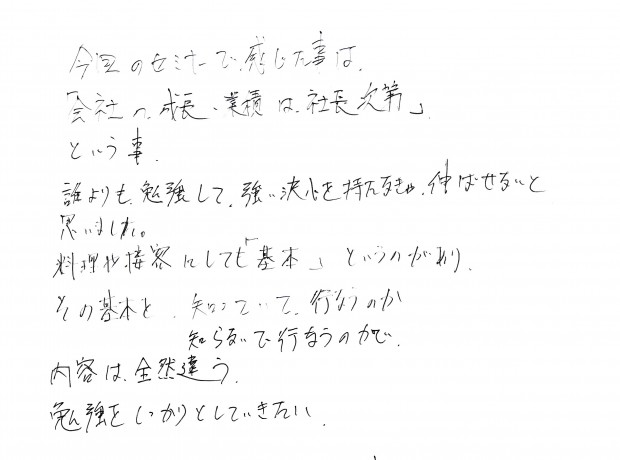 今回のセミナーで感じた事は、
「会社の成長・業績は、社長次第」
という事。
誰よりも、勉強して、強い決心を持たなきゃ、伸ばせないと
思いました。
料理や接客にしても「基本」というのがあり、
その基本を、知っていて、行なうのか
知らないで行なうのかで、
内容は、全然違う。
勉強をしっかりとしていきたい。